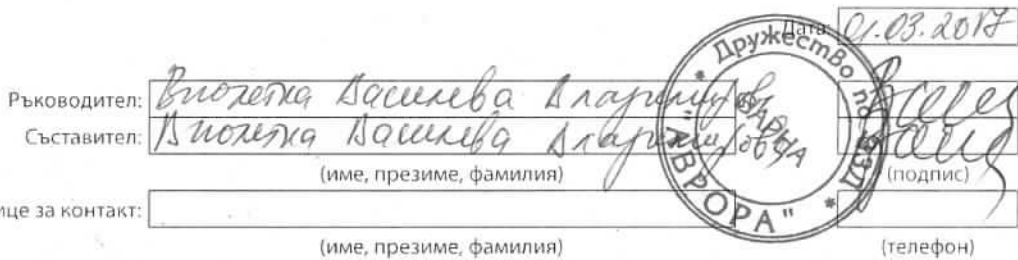 Дата: 01.03.2017
Ръководител: Виолетка Василева Владимирова
Съставител: Виолетка Василева Владимирова
(име, презиме, фамилия) (подпис)
ице за контакт:
(име, презиме, фамилия) (телефон)
* Дружество по ЗЗД * "АВРОРА"
ВАРНА